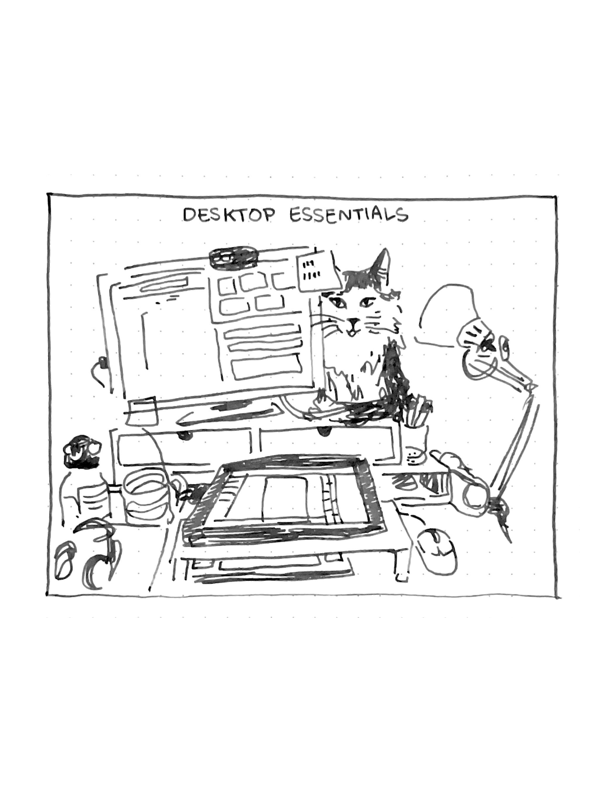 DESKTOP ESSENTIALS